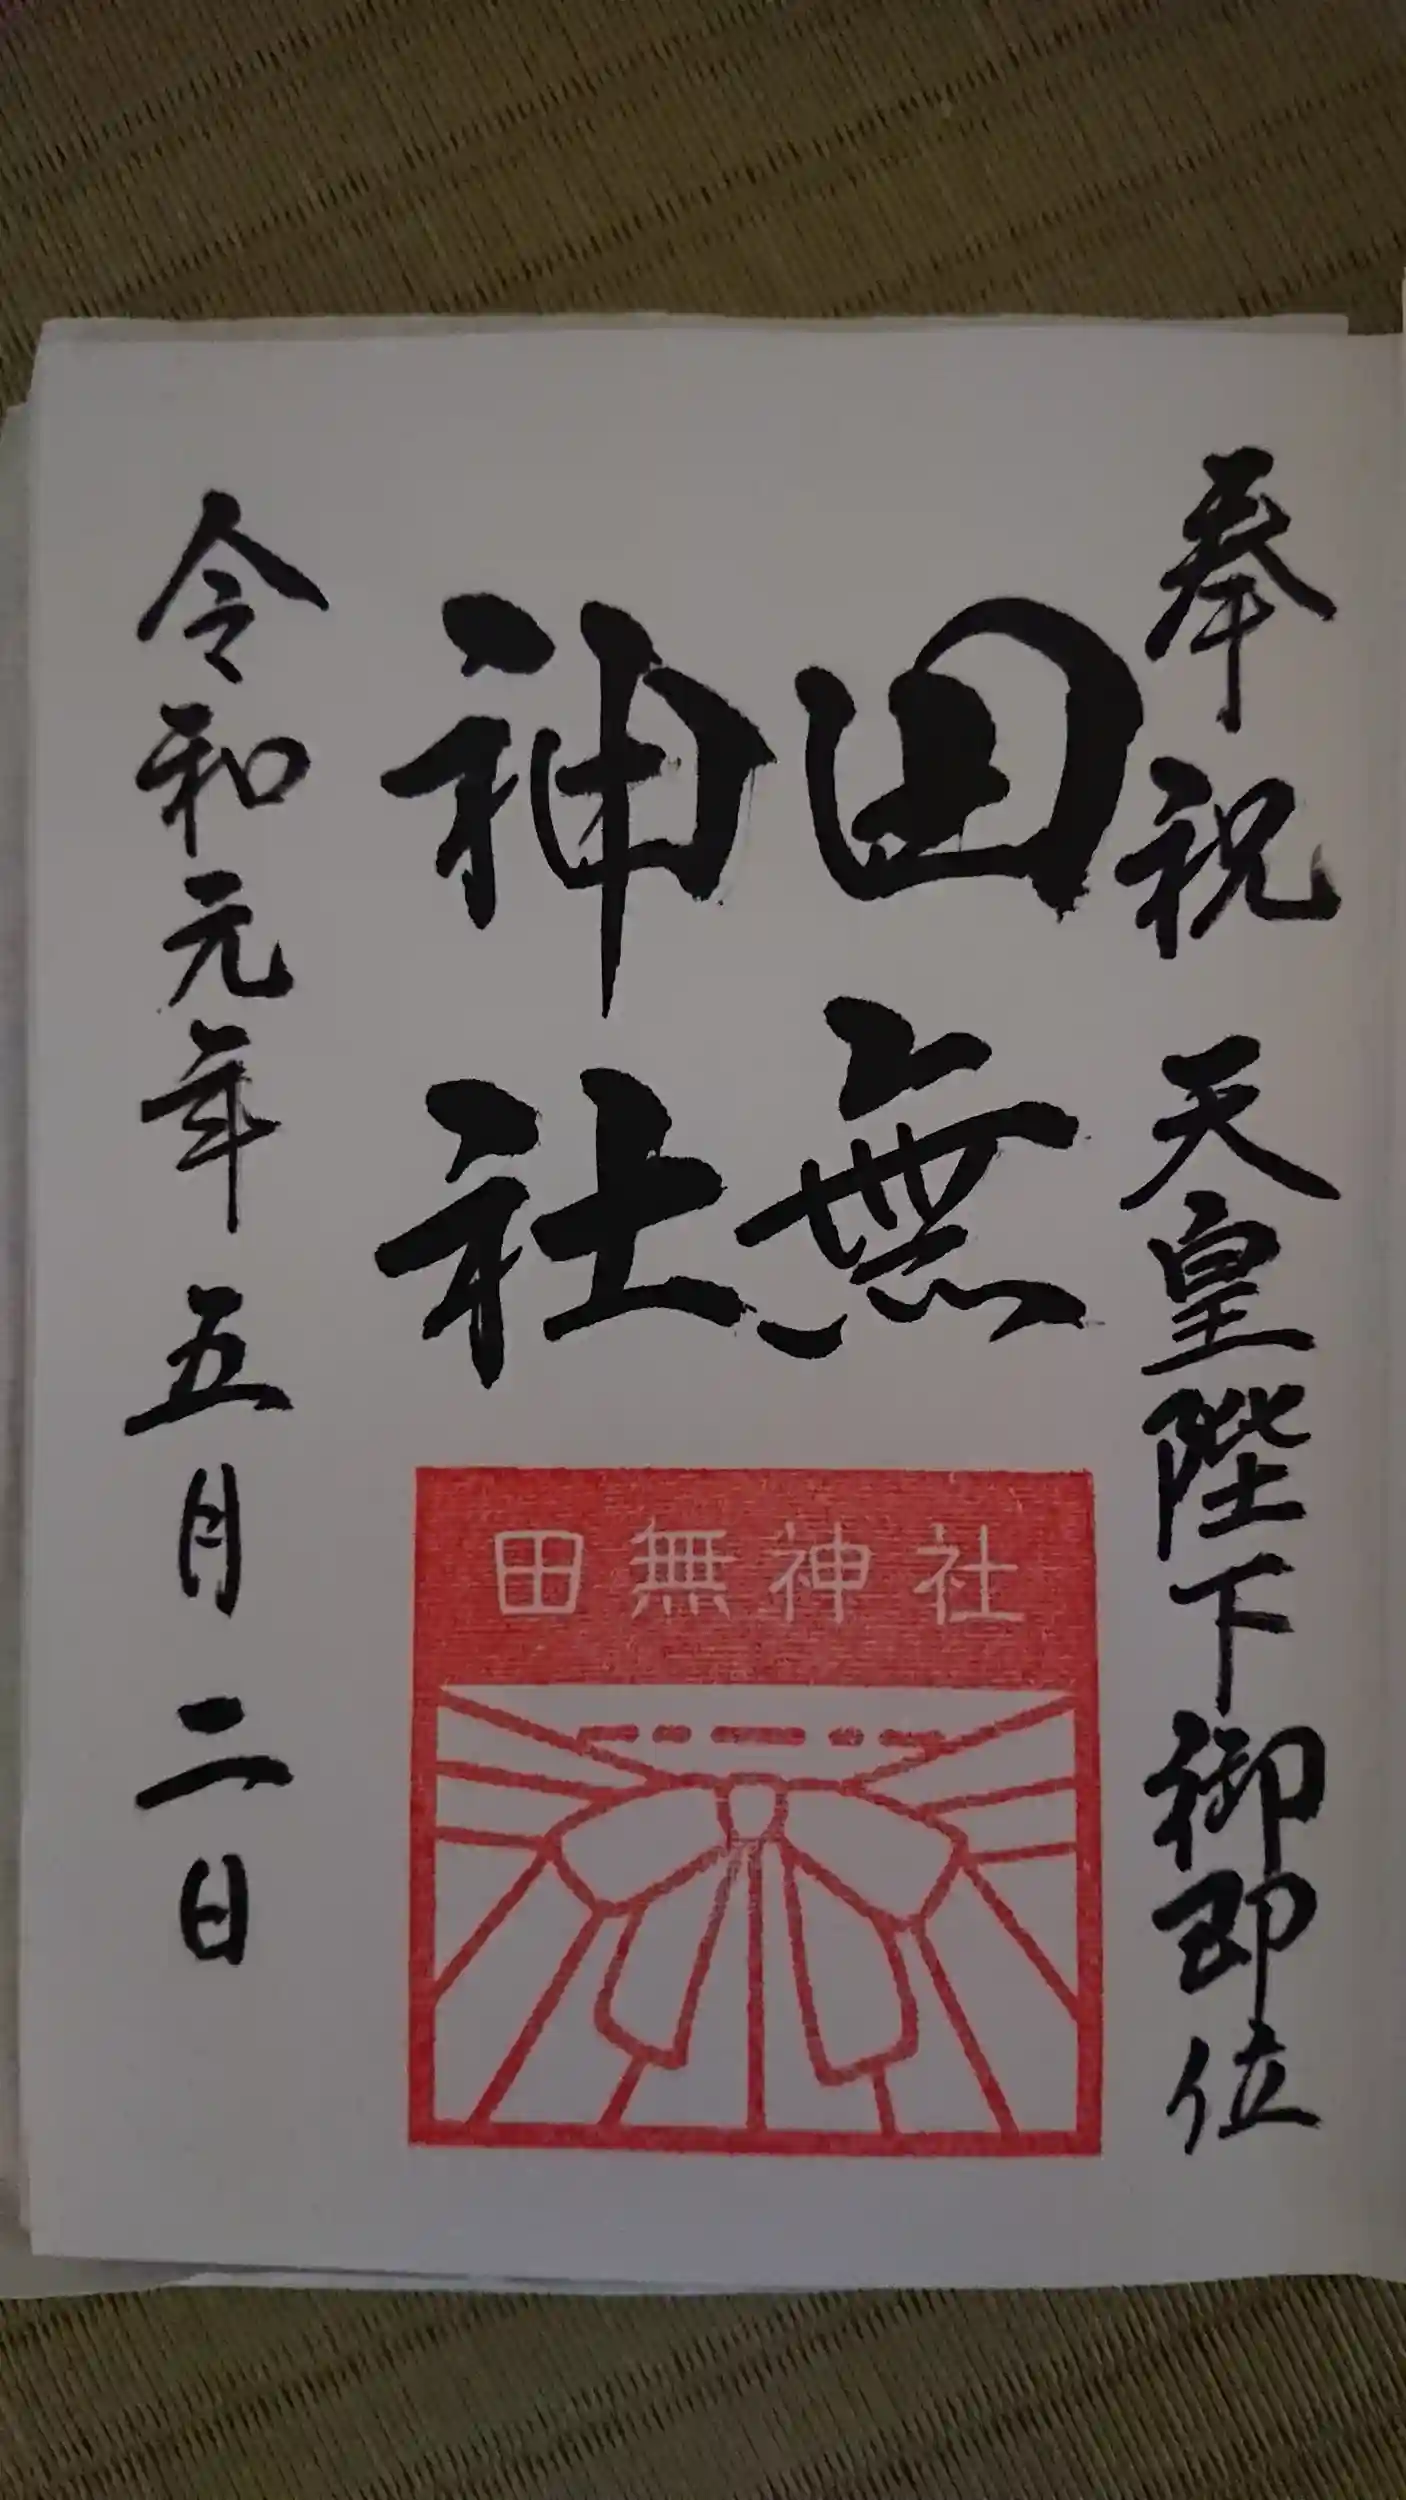 奉祝 天皇陛下御即位
田無
神社
田無神社
令和元年五月二日